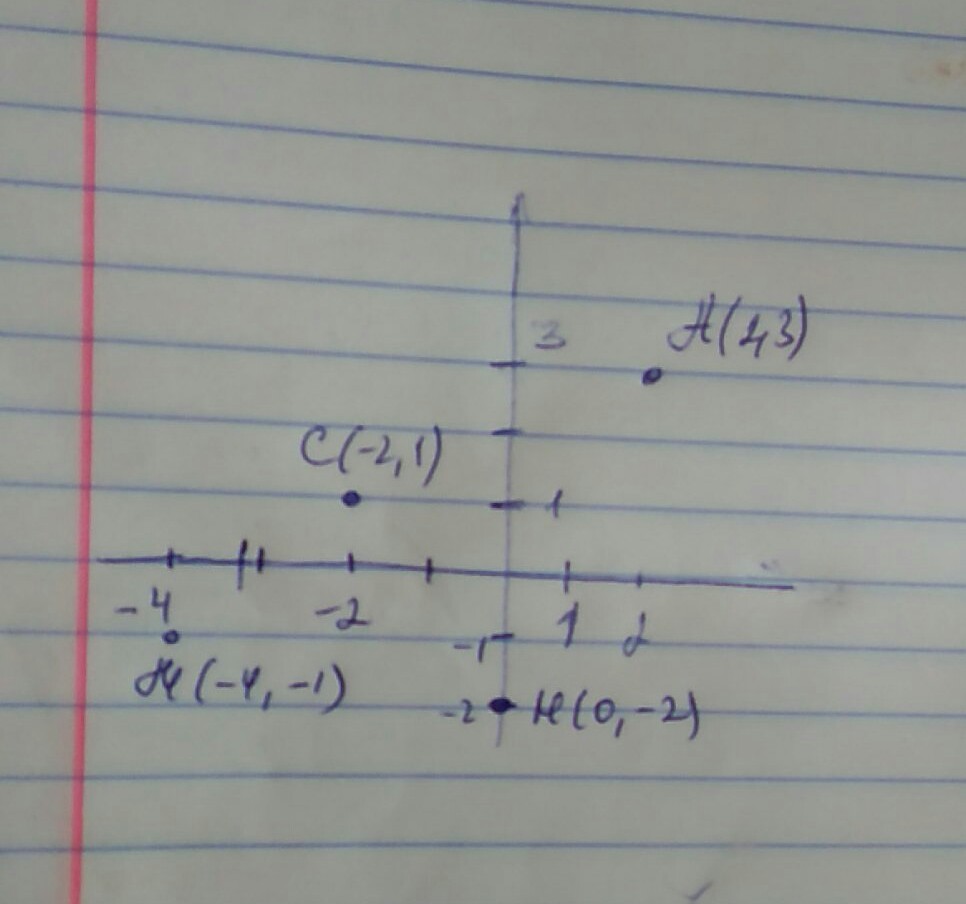 3
C(-2,1)
1
-4
-2
1
2
-1
(-4, -1)
-2
(0,-2)